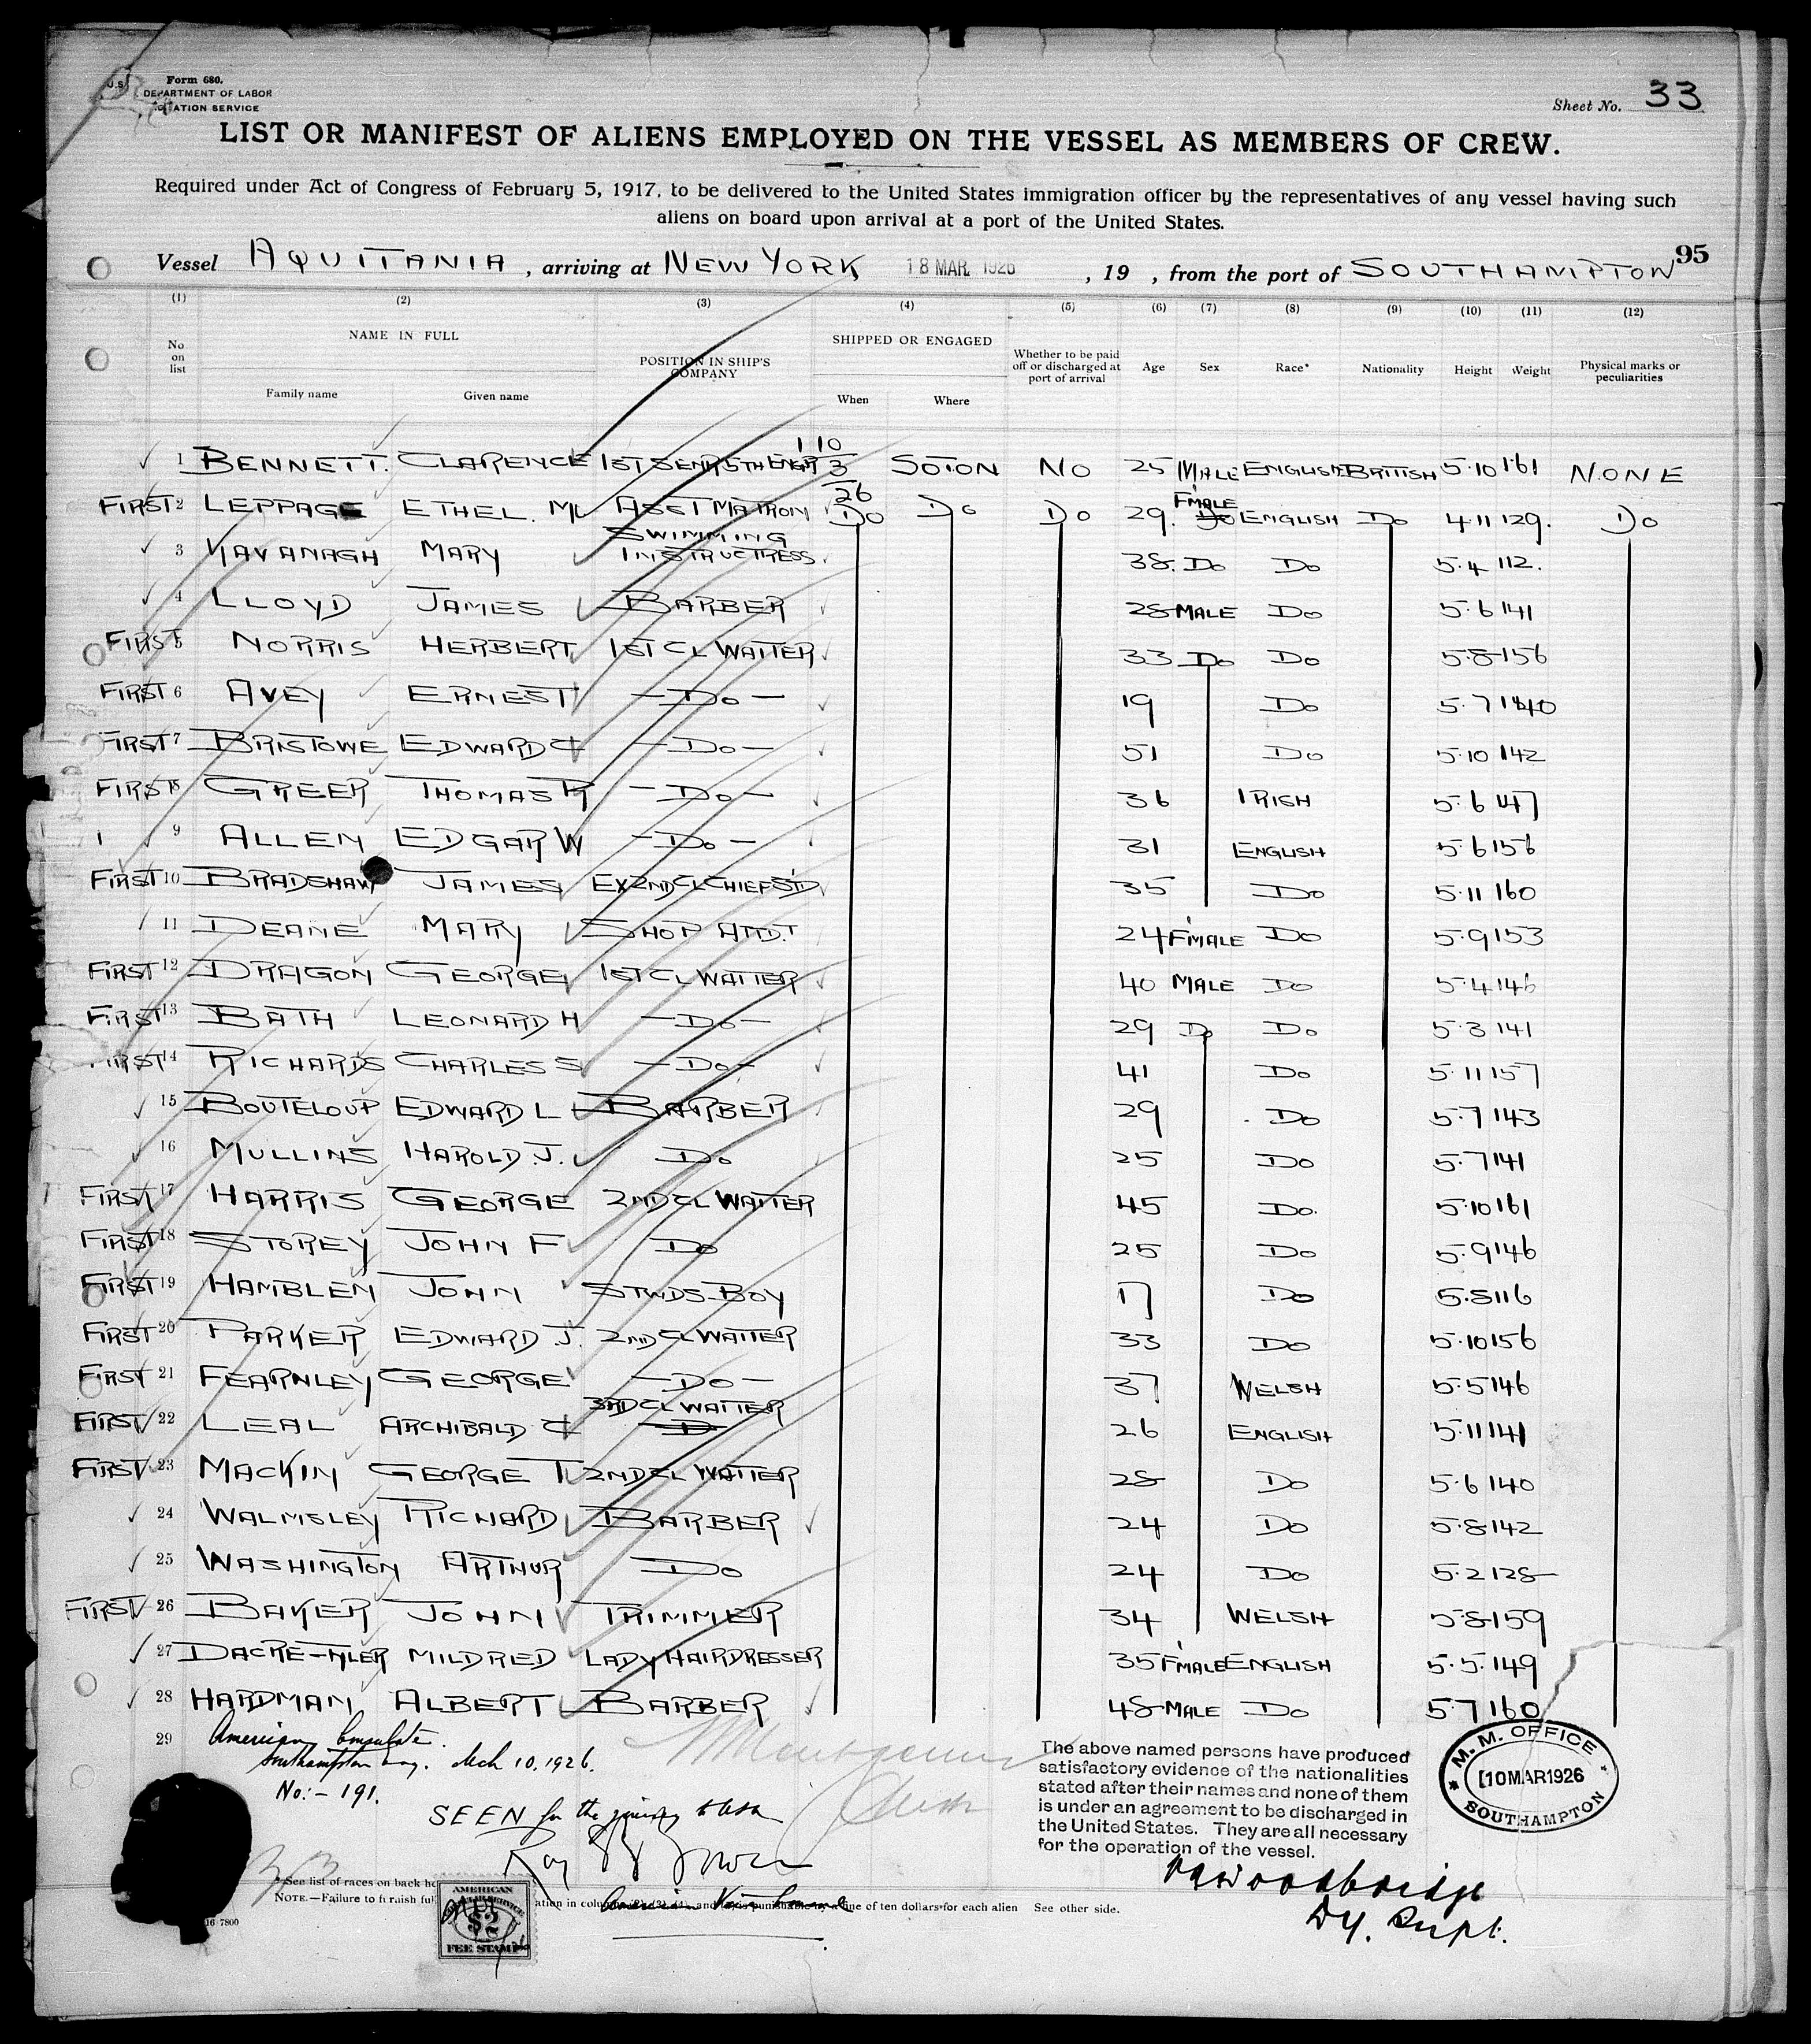 Form 680.
U.S. DEPARTMENT OF LABOR
ATION SERVICE
Sheet No. 33
LIST OR MANIFEST OF ALIENS EMPLOYED ON THE VESSEL AS MEMBERS OF CREW.
Required under Act of Congress of February 5, 1917, to be delivered to the United States immigration officer by the representatives of any vessel having such
aliens on board upon arrival at a port of the United States.
95
Vessel AQUITANIA, arriving at NEW YORK 18 MAR. 1926, 19 , from the port of SOUTHAMPTON
(1) (2) (3) (4) (5) (6) (7) (8) (9) (10) (11) (12)
No on list NAME IN FULL Family name Given name POSITION IN SHIP'S COMPANY SHIPPED OR ENGAGED When Where Whether to be paid off or discharged at port of arrival Age Sex Race* Nationality Height Weight Physical marks or peculiarities
1 BENNETT. CLARENCE 1ST SENR 5TH ENGR 10/3/26 SOTON NO 25 MALE ENGLISH BRITISH 5.10 161 NONE
FIRST 2 LEPPAGE ETHEL. M ASST MATRON DO DO DO 29. FMALE ENGLISH DO 4.11 129. DO
3 KAVANAGH MARY SWIMMING INSTRUCTRESS 38. DO DO 5.4 112.
4 LLOYD JAMES BARBER 28 MALE DO 5.6 141
FIRST 5 NORRIS HERBERT 1ST CL WAITER 33 DO DO 5.8 156
FIRST 6 AVEY ERNEST —DO— 19 DO 5.7 140
FIRST 7 BRISTOWE EDWARD C —DO— 51 DO 5.10 142
FIRST 8 GREER THOMAS R —DO— 36 IRISH 5.6 147
9 ALLEN EDGAR W —DO— 31 ENGLISH 5.6 156
FIRST 10 BRADSHAW JAMES EX 2ND CL CHIEF STD 35 DO 5.11 160
11 DEANE MARY SHOP ATTDT 24 FMALE DO 5.9 153
FIRST 12 DRAGON GEORGE 1ST CL WAITER 40 MALE DO 5.4 146
FIRST 13 BATH LEONARD H —DO— 29 DO DO 5.3 141
FIRST 14 RICHARDS CHARLES S —DO— 41 DO 5.11 157
15 BOUTELOUP EDWARD L BARBER 29 DO 5.7 143
16 MULLINS HAROLD. J. DO 25 DO 5.7 141
FIRST 17 HARRIS GEORGE 2ND CL WAITER 45 DO. 5.10 161
FIRST 18 STOREY JOHN F DO 25 DO 5.9 146
FIRST 19 HAMBLEN JOHN STWDS BOY 17 DO 5.5 116
FIRST 20 PARKER EDWARD J. 2ND CL WAITER 33 DO 5.10 156
FIRST 21 FEARNLEY GEORGE —DO— 37 WELSH 5.5 146
FIRST 22 LEAL ARCHIBALD C 3RD CL WAITER 26 ENGLISH 5.11 141
FIRST 23 MACKIN GEORGE T 2ND CL WAITER 28 DO 5.6 140
24 WALMSLEY RICHARD BARBER 24 DO 5.8 142
25 WASHINGTON ARTHUR DO 24 DO 5.2 128
FIRST 26 BAKER JOHN TRIMMER 34 WELSH 5.8 159
27 DACRE-TYLER MILDRED LADY HAIRDRESSER 35 FMALE ENGLISH 5.5. 149
28 HARDMAN ALBERT BARBER 48 MALE DO 5.7 160
29 American Consulate.
Southampton Eng. Mch 10, 1926.
No:- 191.
SEEN for the journey to USA
The above named persons have produced
satisfactory evidence of the nationalities
stated after their names and none of them
is under an agreement to be discharged in
the United States. They are all necessary
for the operation of the vessel.
M. M. OFFICE
10 MAR 1926
SOUTHAMPTON
Woodbridge
Dy. Supt.
* See list of races on back
NOTE.—Failure to furnish ful
ation in columns punishable by a fine of ten dollars for each alien See other side.
AMERICAN
$2
FEE STAMP
16-7800